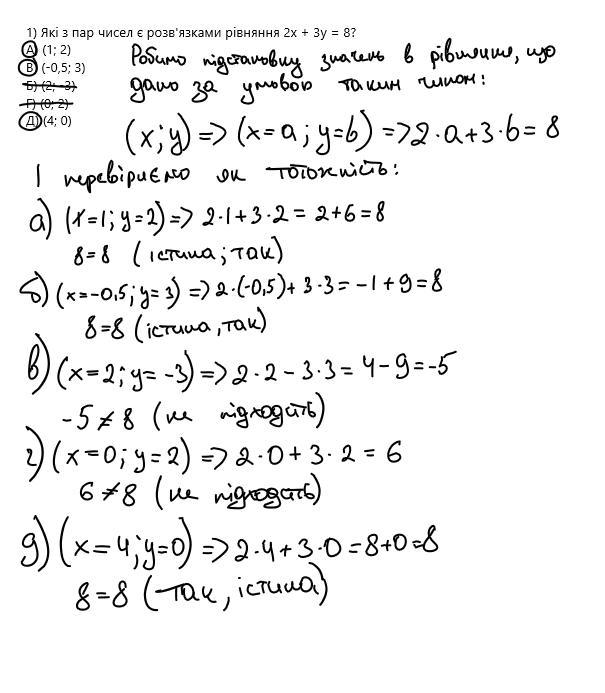 1) Які з пар чисел є розв'язками рівняння 2x + 3y = 8?
А) (1; 2)
В) (-0,5; 3)
Б) (2; -3)
Г) (0; 2)
Д) (4; 0)
Робимо підстановку значень в рівняння, що
дано за умовою таким чином:
(x;y) => (x=a; y=b) => 2·a+3·b=8
І перевіряємо як тотожність:
а) (x=1; y=2) => 2·1+3·2= 2+6=8
8=8 (істина; так)
б) (x=-0,5; y=3) => 2·(-0,5)+ 3·3= -1+9=8
8=8 (істина, так)
в) (x=2; y= -3) => 2·2-3·3= 4-9=-5
-5≠8 (не підходить)
г) (x=0; y=2) => 2·0+3·2=6
6≠8 (не підходить)
д) (x=4; y=0) => 2·4+3·0=8+0=8
8=8 (так, істина)